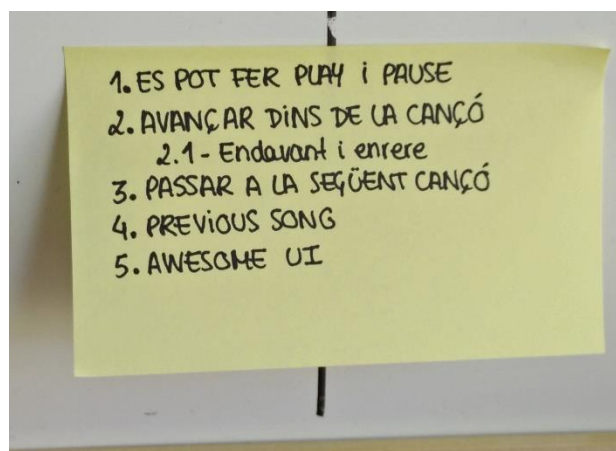 1. ES POT FER PLAY i PAUSE
2. AVANÇAR DINS DE LA CANÇÓ
2.1 - Endavant i enrere
3. PASSAR A LA SEGÜENT CANÇÓ
4. PREVIOUS SONG
5. AWESOME UI